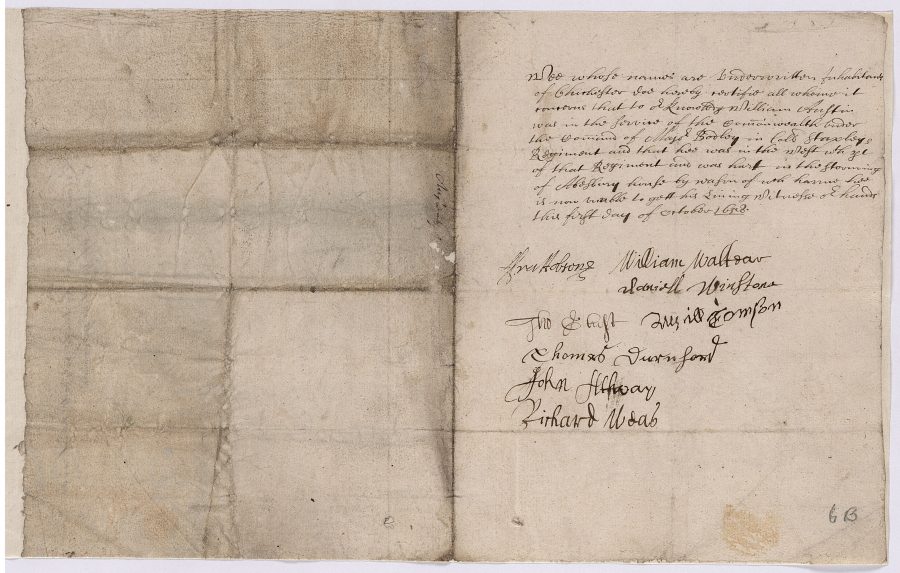 Wee whose names are Underwritten Inhabitants
of Chichester doe hereby certifie all whome it
concerns that to or knowledg William Austin
was in the service of the Commonwealth under
the Comand of Major Bodley in Coll Stapley
Regiment and that hee was in the West wth pt
of that Regiment and was hurt in the storming
of Abbstury house by reason of wch harme hee
is now unable to gett his Living Witnesse or hands
this first day of october 1658
William Walter
Daniell Winstone
Tho Will Tomson
Thomas Durnford
John Allway
Richard Weab
6 B